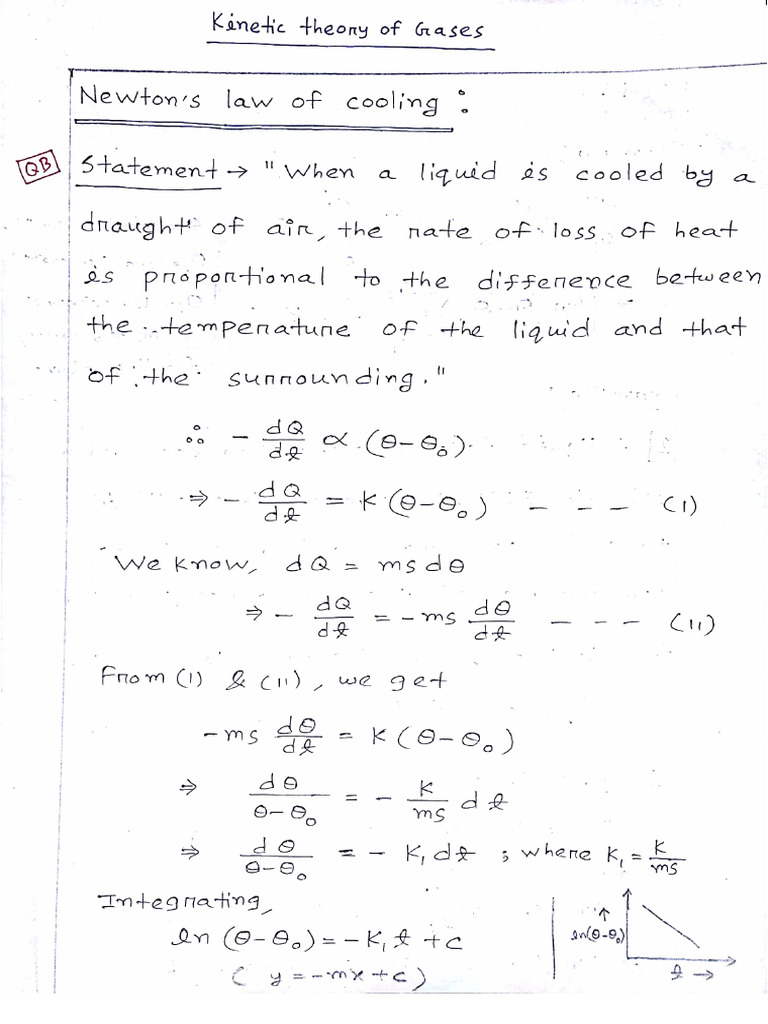 Kinetic theory of Gases
Newton's law of cooling :
QB Statement → "When a liquid is cooled by a
draught of air, the rate of loss of heat
is proportional to the difference between
the temperature of the liquid and that
of the surrounding."
∴ - dQ/dt ∝ (θ-θ₀)
⇒ - dQ/dt = K (θ-θ₀) - - - (I)
We know, dQ = msdθ
⇒ - dQ/dt = - ms dθ/dt - - - (II)
From (I) & (II), we get
-ms dθ/dt = K (θ-θ₀)
⇒ dθ/θ-θ₀ = - K/ms dt
⇒ dθ/θ-θ₀ = - K₁dt ; where K₁ = K/ms
Integrating,
ln (θ-θ₀) = -K₁t + c
(y = -mx + c)
↑
ln(θ-θ₀)
t →